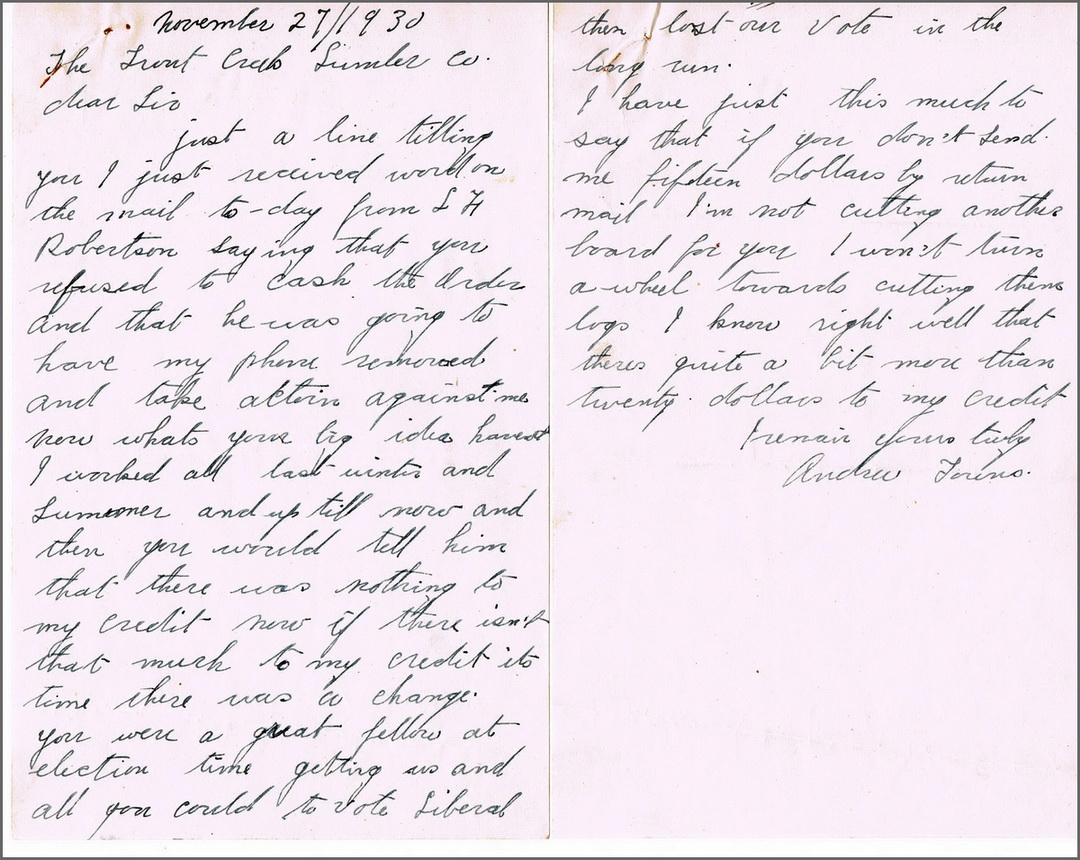 November 27/1930
The Trout Creek Lumber Co.
dear Sir
just a line tilling
you I just received word on
the mail to-day from
Robertson saying that you
refused to cash the Order
and that he was going to
have my phone removed
and take action against me
now whats your big idea havent
I worked all last winter and
Summer and up till now and
then you would tell him
that there was nothing to
my credit now if there isn't
that much to my credit its
time there was a change.
you were a great fellow at
election time getting us and
all you could to vote Liberal
then lost our Vote in the
long run.
I have just this much to
say that if you don't send.
me fifteen dollars by return
mail I'm not cutting another
board for you I won't turn
a wheel towards cutting them
logs I know right well that
theres quite a bit more than
twenty. dollars to my credit
I remain yours truly
Andrew